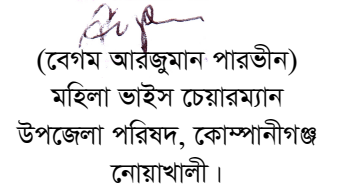 (বেগম আরজুমান পারভীন)
মহিলা ভাইস চেয়ারম্যান
উপজেলা পরিষদ, কোম্পানীগঞ্জ
নোয়াখালী।